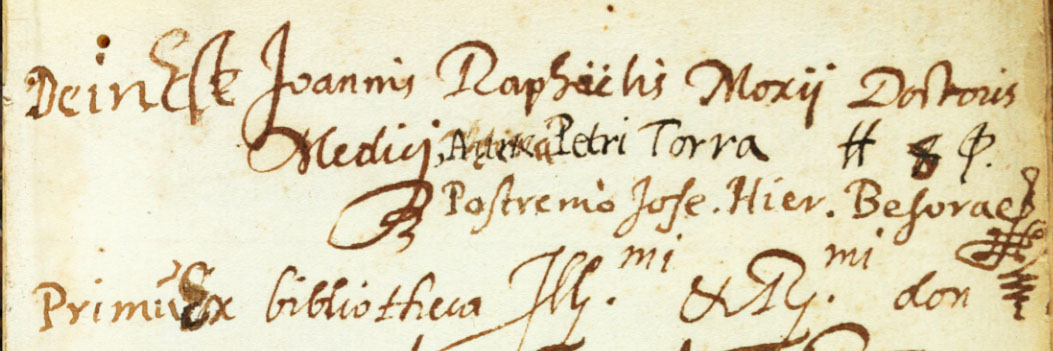 Dein Est Joannis Raphaelis Moxij Doctoris
Medici, Petri Torra
Postremò Jose. Hier. Besora
Primũ Ex bibliotheca Ill.mi & R.mi don